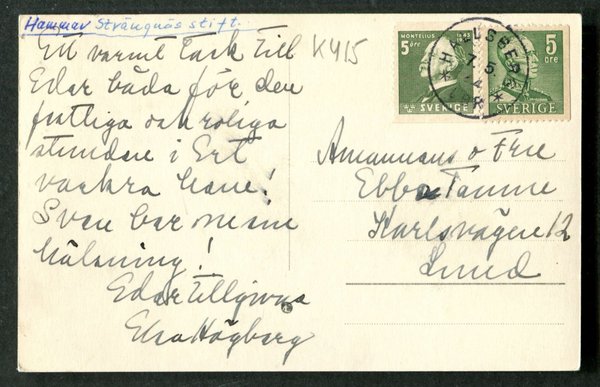 Hammar Strängnäs stift.
Ett varmt tack till
Eder båda för den
trefliga och roliga
stunden i Ert
vackra hem!
Sven ber om en
hälsning!
Eder tillgivna
Elsa Högberg
K415
MONTELIUS 1843
5 öre
SVERIGE
5 öre
SVERIGE
HALLSBERG
7. 5.
Amanuens o Fru
Ebbe Tamm
Karlsvägen 12
Lund